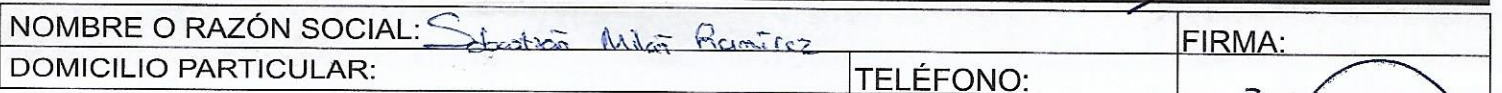 NOMBRE O RAZÓN SOCIAL: Sebastián Milán Ramírez FIRMA:
DOMICILIO PARTICULAR: TELÉFONO: